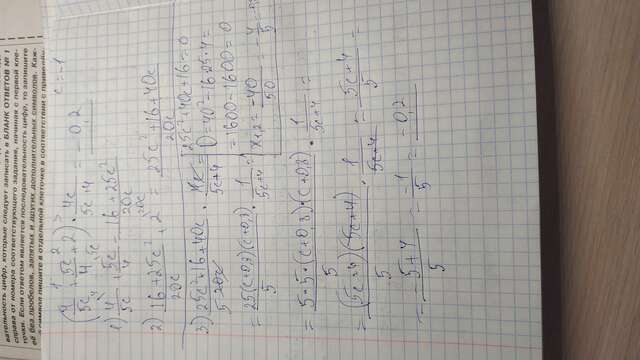 вательность цифр, которые следует записать в БЛАНК ОТВЕТОВ № 1
справа от номера соответствующего задания, начиная с первой кле-
точки. Если ответом является последовательность цифр, то запишите
её без пробелов, запятых и других дополнительных символов. Каж-
символ пишите в отдельной клеточке в соответствии с приведён-
(4/5c + 5c/4 + 2) · 4c/5c+4 = -0,2 c = -1
1) 4/5c + 5c/4 = 16+25c²/20c
2) 16+25c²/20c + 2 = 25c²+16+40c/20c
3) 25c²+16+40c/20c · 4c/5c+4 =
25c²+40c+16=0
D=40²-16·25·4=
=1600-1600=0
x1,2 = -40/50 = -4/5
= 25(c+0,8)(c+0,8)/5 · 1/5c+4 =
= 5·5·(c+0,8)·(c+0,8)/5 · 1/5c+4 =
= (5c+4)(5c+4)/5 · 1/5c+4 = 5c+4/5 =
= -5+4/5 = -1/5 = -0,2